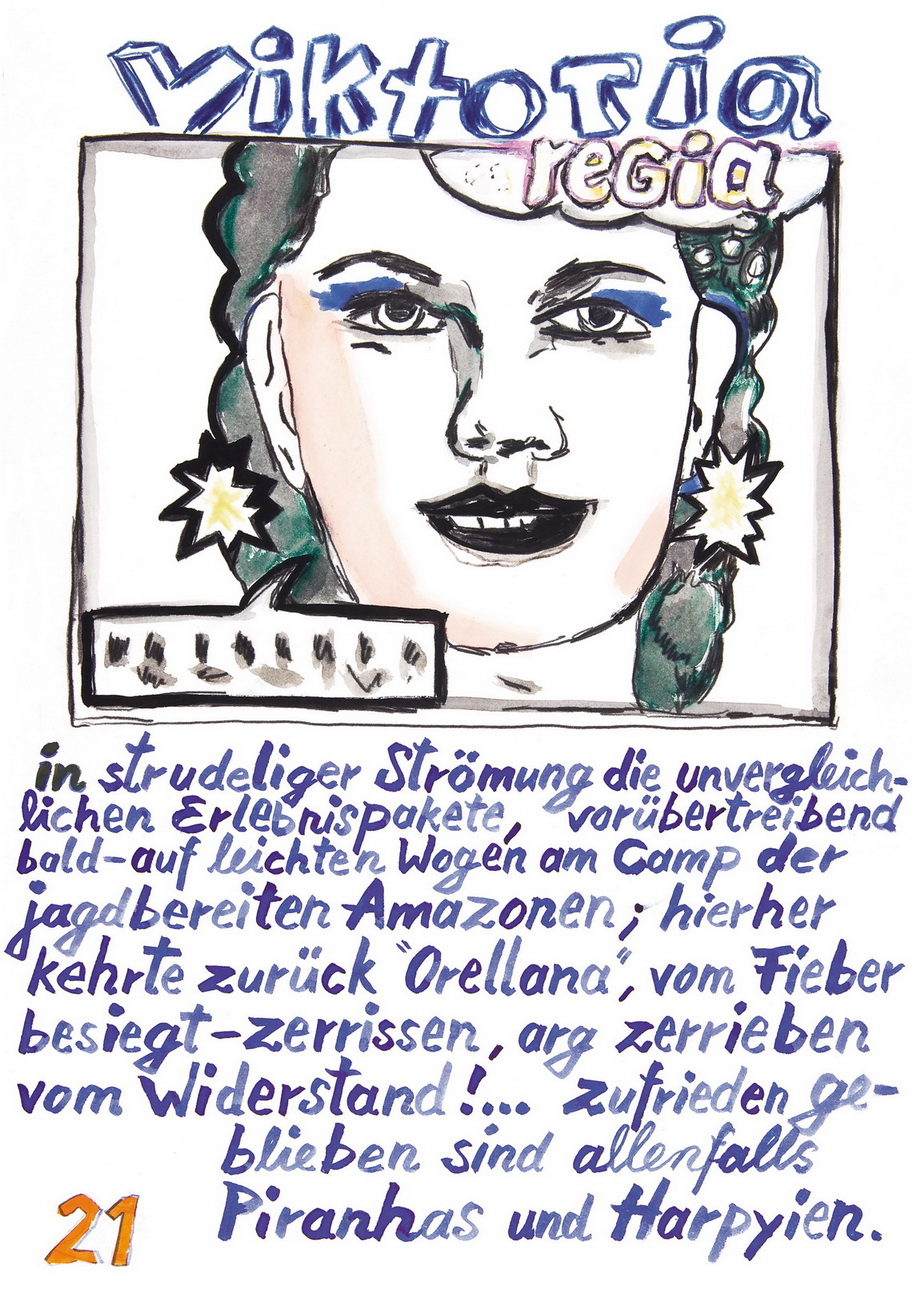 Viktoria
regia
in strudeliger Strömung die unvergleich-
lichen Erlebnispakete, vorübertreibend
bald-auf leichten Wogen am Camp der
jagdbereiten Amazonen; hierher
kehrte zurück "Orellana", vom Fieber
besiegt-zerrissen, arg zerrieben
vom Widerstand!... zufrieden ge-
blieben sind allenfalls
21 Piranhas und Harpyien.